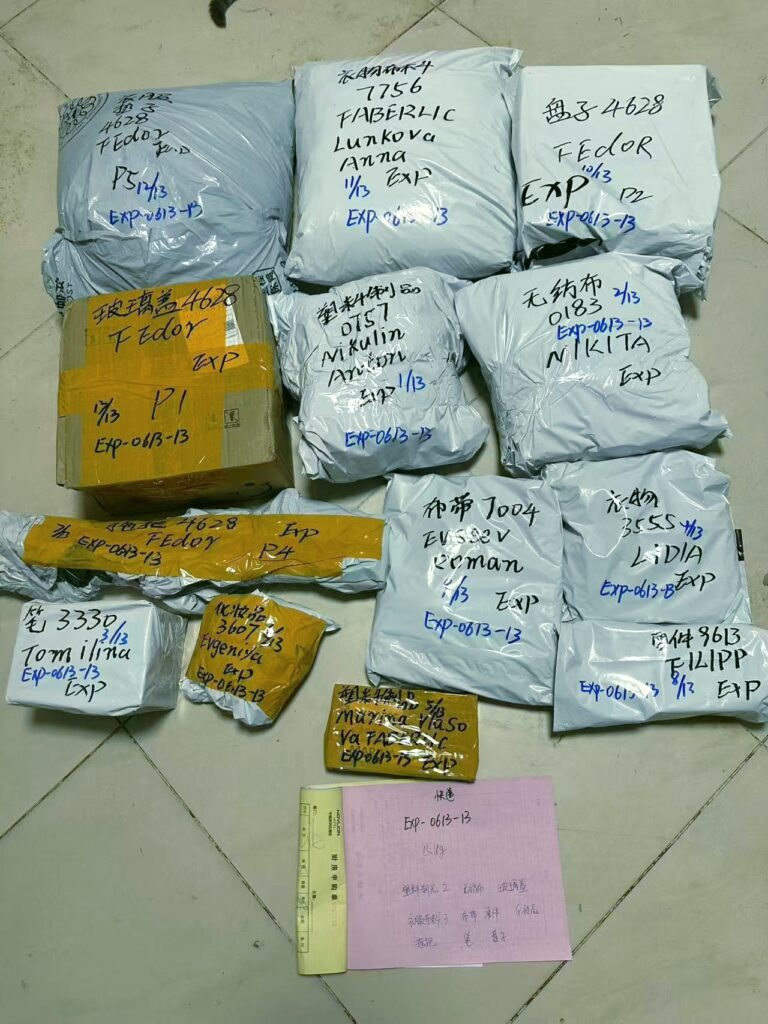 衣服
盘子
4628
FEdor
P5 12/13
EXP-0613-13
衣物布料
7756
FABERLIC
Lunkova
Anna
11/13 EXP
EXP-0613-13
盘子4628
FEdoR
10/13
EXP P2
EXP-0613-13
玻璃盖4628
FEdor
EXP
/13 P1
EXP-0613-13
塑料制品
0757
Nikulin
Anton
Exp 1/13
EXP-0613-13
无纺布
0183 2/13
EXP-0613-13
NIKITA
Exp
4628 Exp
EXP-0613-13 FEdor P4
布带7004
Evseev
Roman
/13 EXP
EXP-0613-13
衣物
3555 4/13
LIDIA
EXP-0613-13 EXP
笔3330
3/13
Tomilina
EXP-0613-13
EXP
化妆品
3607 /13
Evgeniya
Exp
EXP-0613-13
零件9613
FILIPP
EXP-0613-13 8/13 EXP
塑料制品
5/13
Marina Vlaso
Va FABERLIC
EXP-0613-13 EXP
快递
EXP-0613-13
15kg
塑料制品2 无纺布 玻璃盖
衣物布料3 布带 零件 化妆品
笔 盘子